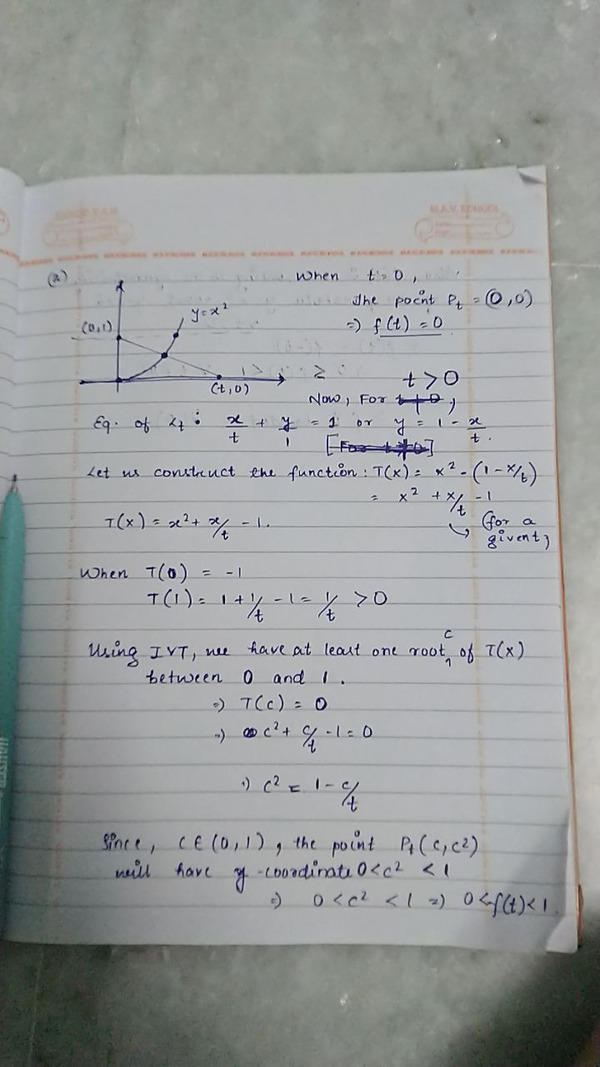 (a)
When t=0,
The point Pt = (0,0)
⇒ f(t) = 0
y=x²
(0,1)
(t,0)
t>0
Now, For t≠0,
Eq. of Lt : x/t + y/1 = 1 or y = 1 - x/t.
[For t≠0]
Let us construct the function: T(x) = x² - (1-x/t)
= x² + x/t - 1
T(x) = x² + x/t - 1.
(for a given t)
When T(0) = -1
T(1) = 1 + 1/t - 1 = 1/t > 0
Using IVT, we have at least one root c of T(x)
between 0 and 1.
⇒ T(c) = 0
⇒ c² + c/t - 1 = 0
⇒ c² = 1 - c/t
Since, c∈(0,1), the point Pt(c,c²)
will have y-coordinate 0<c²<1
⇒ 0<c²<1 ⇒ 0<f(t)<1.